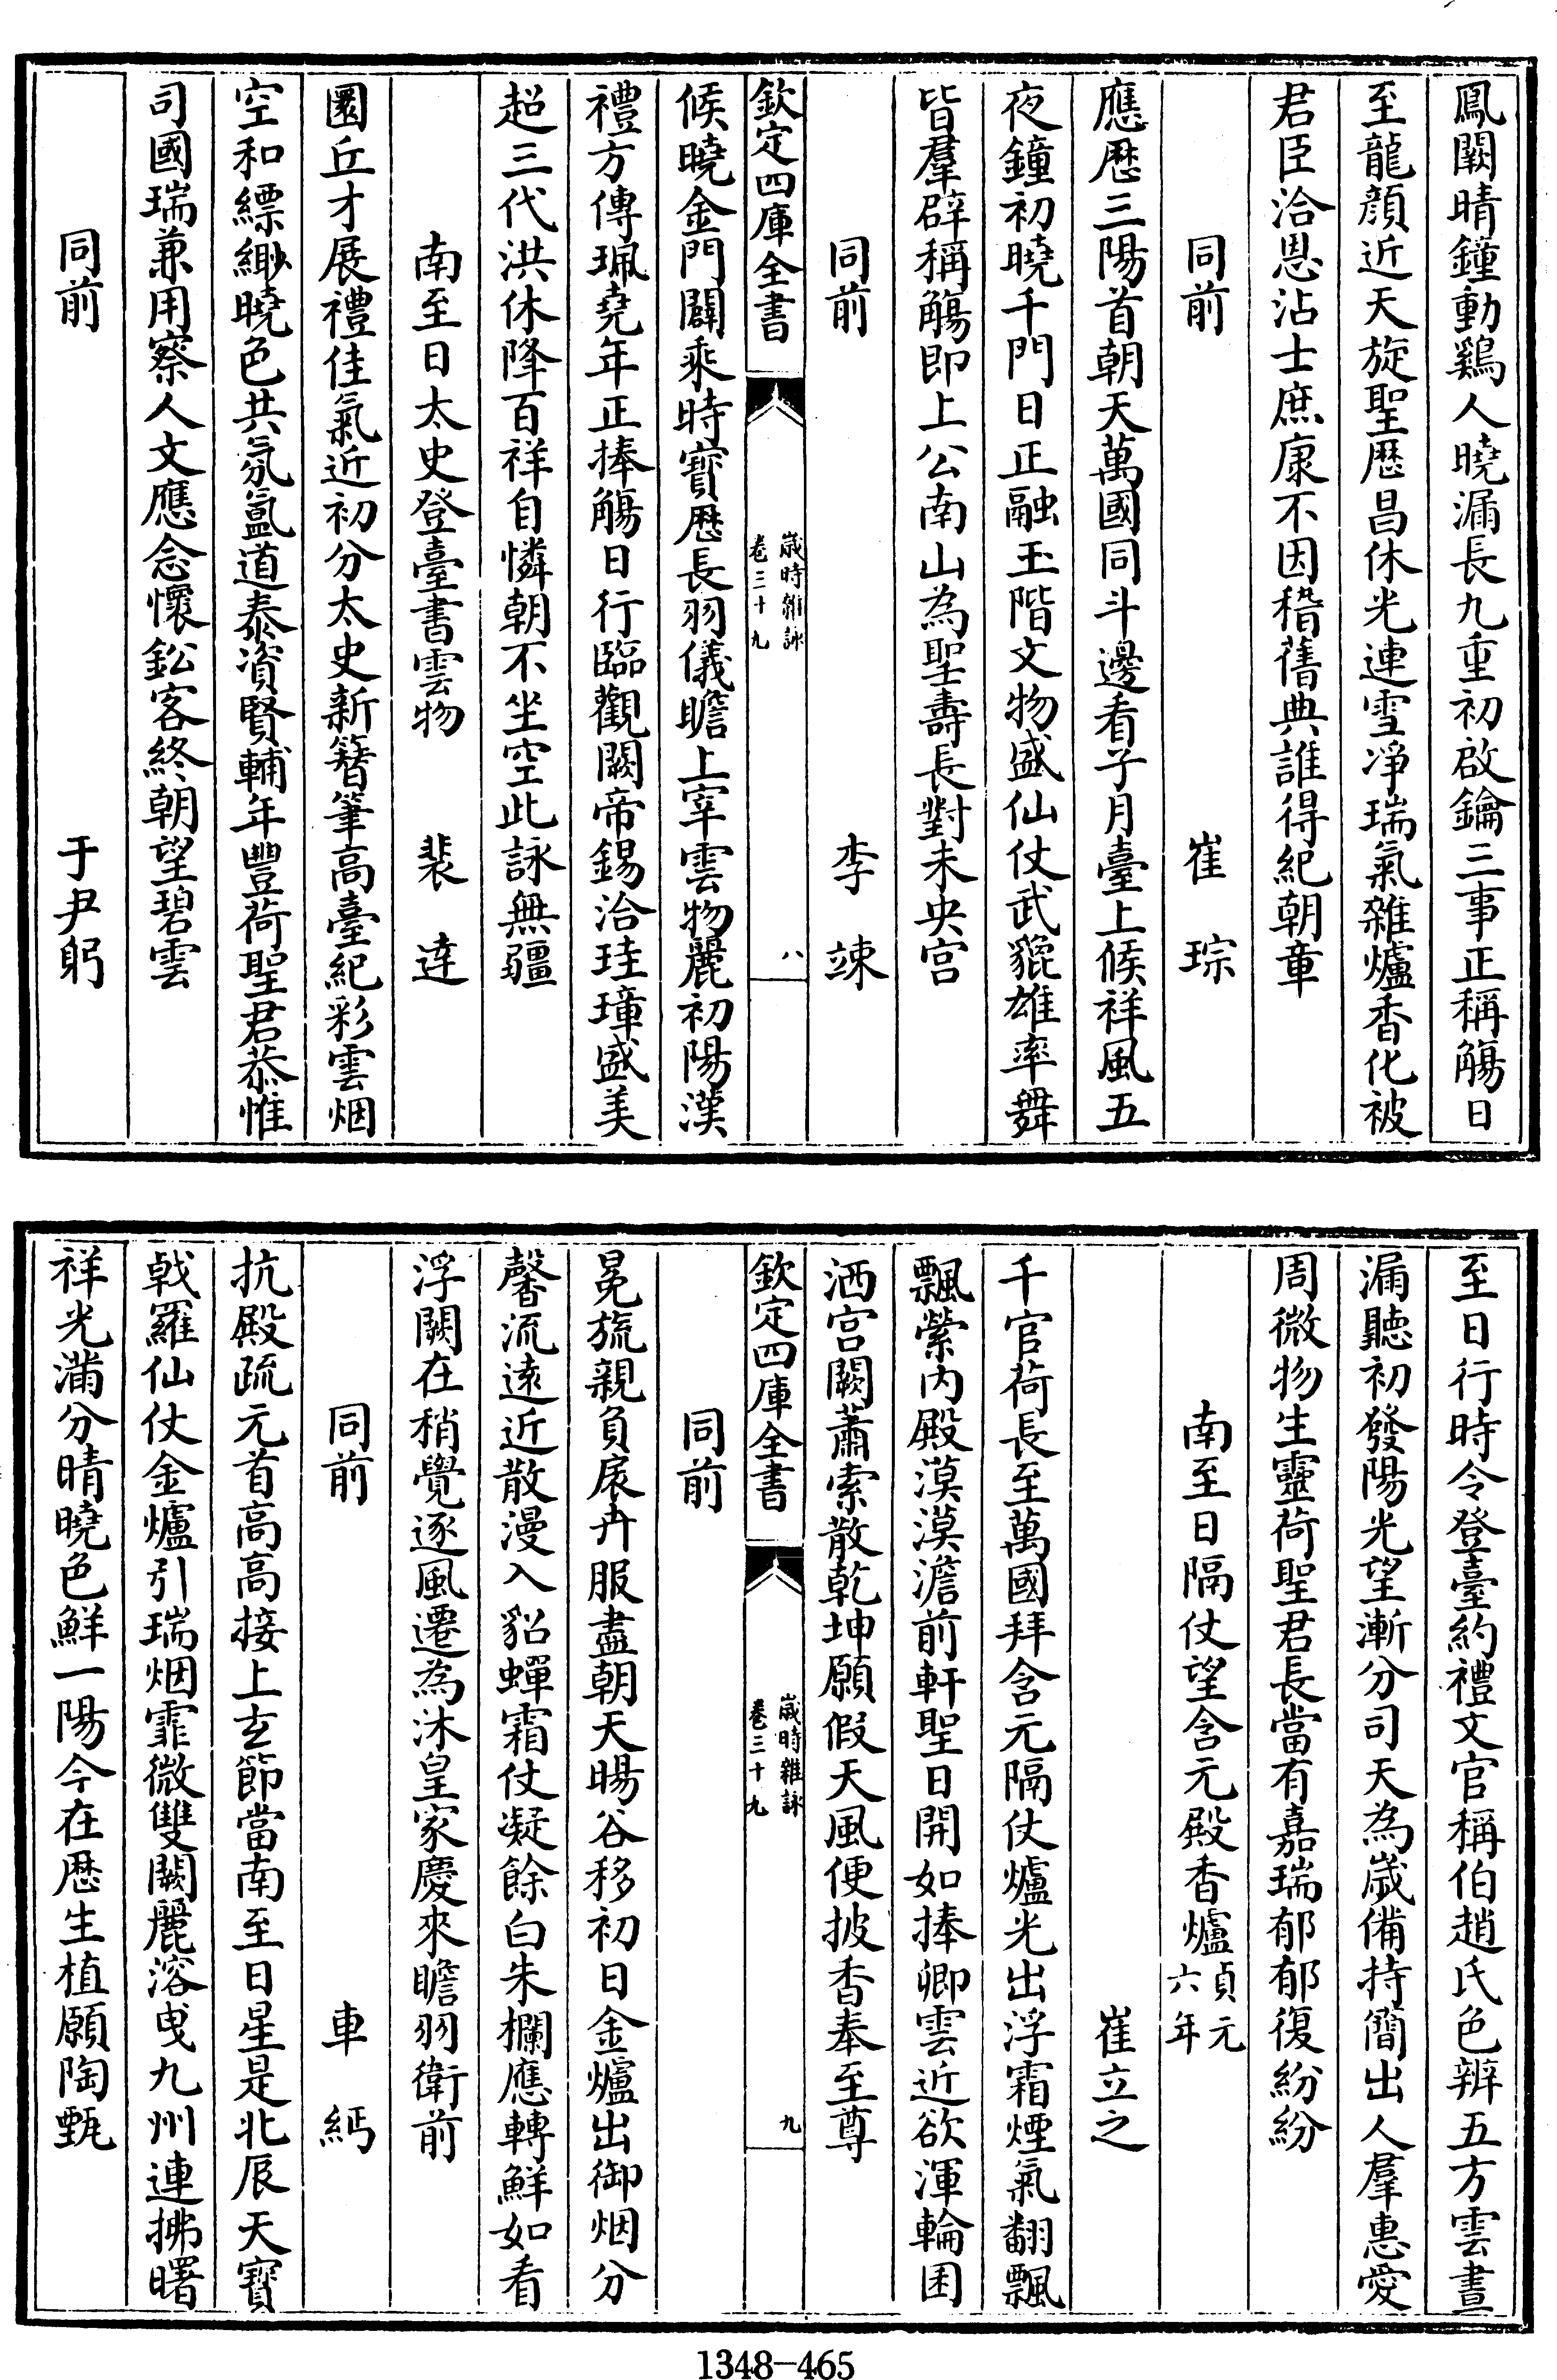 鳳闕晴鐘動鷄人曉漏長九重初啟鑰三事正稱觴日
至龍顔近天旋聖厯昌休光連雪淨瑞氣雜爐香化被
君臣洽恩沾士庶康不因稽舊典誰得紀朝章
同前 崔琮
應厯三陽首朝天萬國同斗邊看子月臺上候祥風五
夜鐘初曉千門日正融玉階文物盛仙仗武貔雄率舞
皆羣辟稱觴即上公南山為聖壽長對未央宫
同前 李竦
欽定四庫全書 歲時雜詠 卷三十九 八
候曉金門闢乘時寳厯長羽儀瞻上宰雲物麗初陽漢
禮方傳珮堯年正捧觴日行臨觀闕帝錫洽珪璋盛美
超三代洪休降百祥自憐朝不坐空此詠無疆
南至日太史登臺書雲物 裴達
圜丘才展禮佳氣近初分太史新簮筆高臺紀彩雲烟
空和縹緲曉色共氛氲道泰資賢輔年豐荷聖君恭惟
司國瑞兼用察人文應念懷鉛客終朝望碧雲
同前 于尹躬
至日行時令登臺約禮文官稱伯趙氏色辨五方雲晝
漏聽初發陽光望漸分司天為歲備持簡出人羣惠愛
周微物生靈荷聖君長當有嘉瑞郁郁復紛紛
南至日隔仗望含元殿香爐 貞元六年
崔立之
千官荷長至萬國拜含元隔仗爐光出浮霜煙氣翻飄
飄縈内殿漠漠澹前軒聖日開如捧卿雲近欲渾輪囷
洒宫闕蕭索散乾坤願假天風便披香奉至尊
欽定四庫全書 歲時雜詠 卷三十九 九
同前
冕旒親負扆卉服盡朝天暘谷移初日金爐出御烟分
馨流遠近散漫入貂蟬霜仗凝餘白朱欄應轉鮮如看
浮闕在稍覺逐風遷為沐皇家慶來瞻羽衛前
同前 車𦀌
抗殿疏元首高高接上玄節當南至日星是北辰天寳
戟羅仙仗金爐引瑞烟霏微雙闕麗溶曳九州連拂曙
祥光滿分晴曉色鮮一陽今在厯生植願陶甄
1348-465